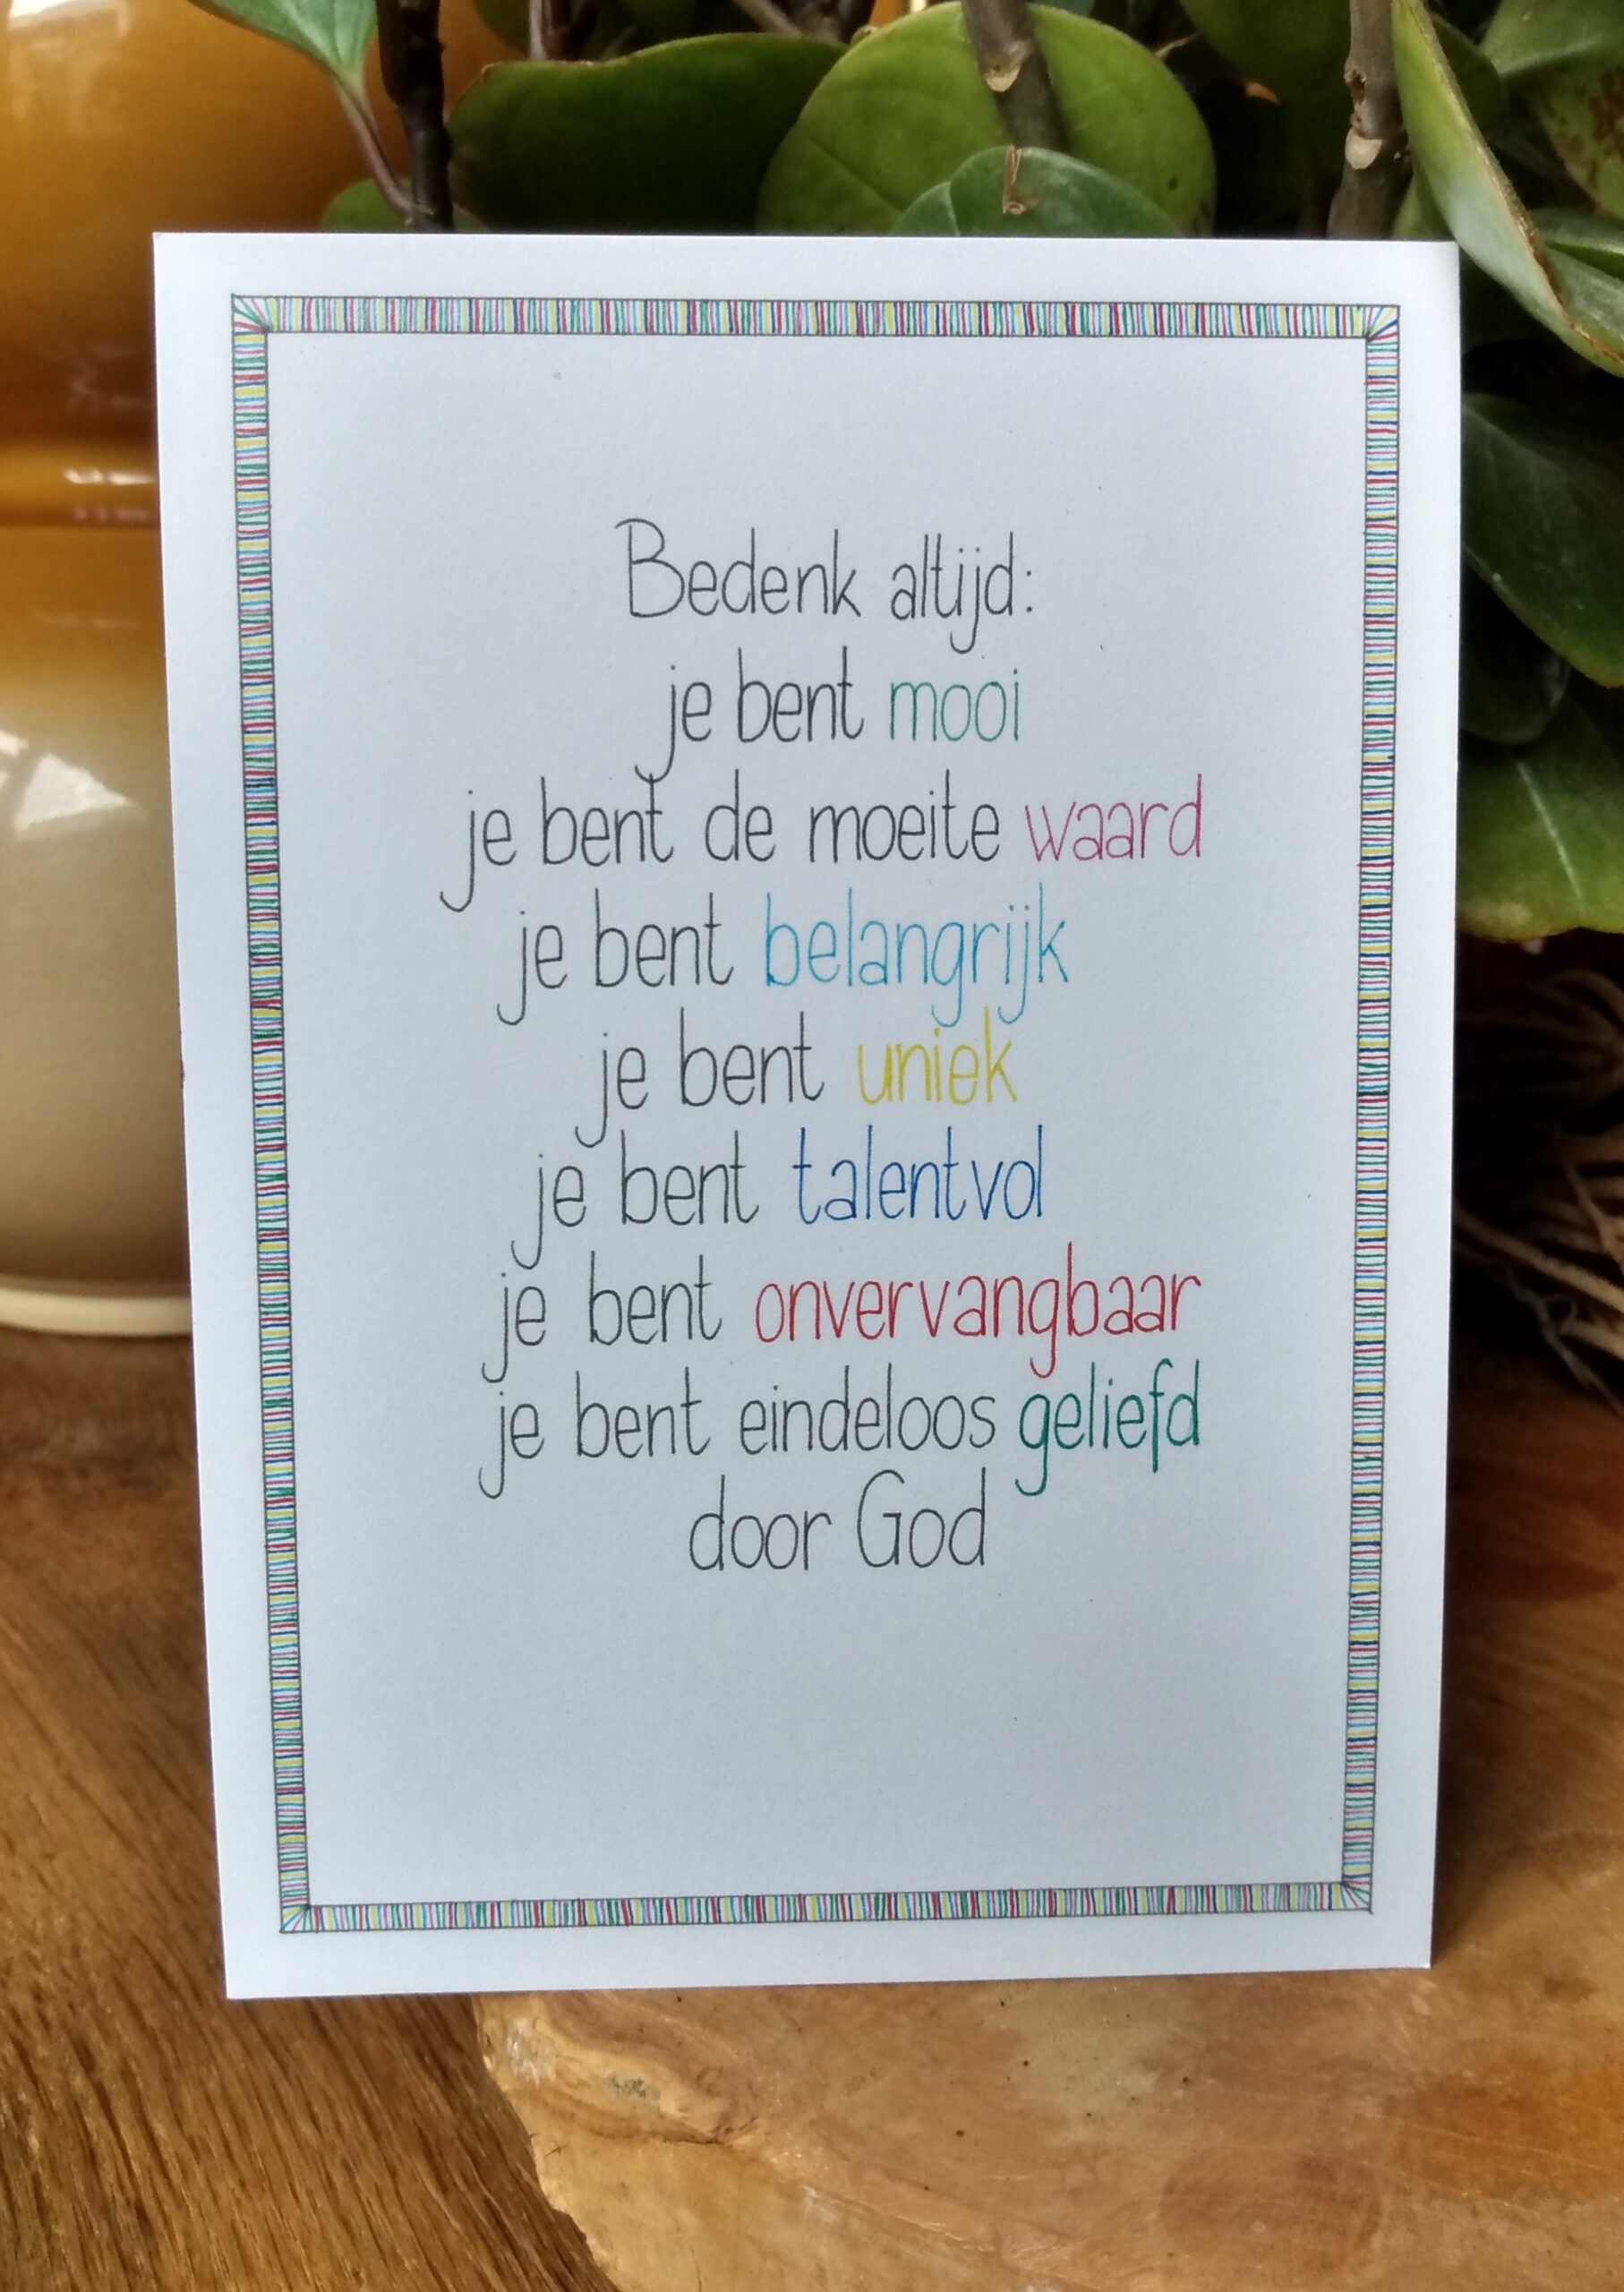 Bedenk altijd:
je bent mooi
je bent de moeite waard
je bent belangrijk
je bent uniek
je bent talentvol
je bent onvervangbaar
je bent eindeloos geliefd
door God